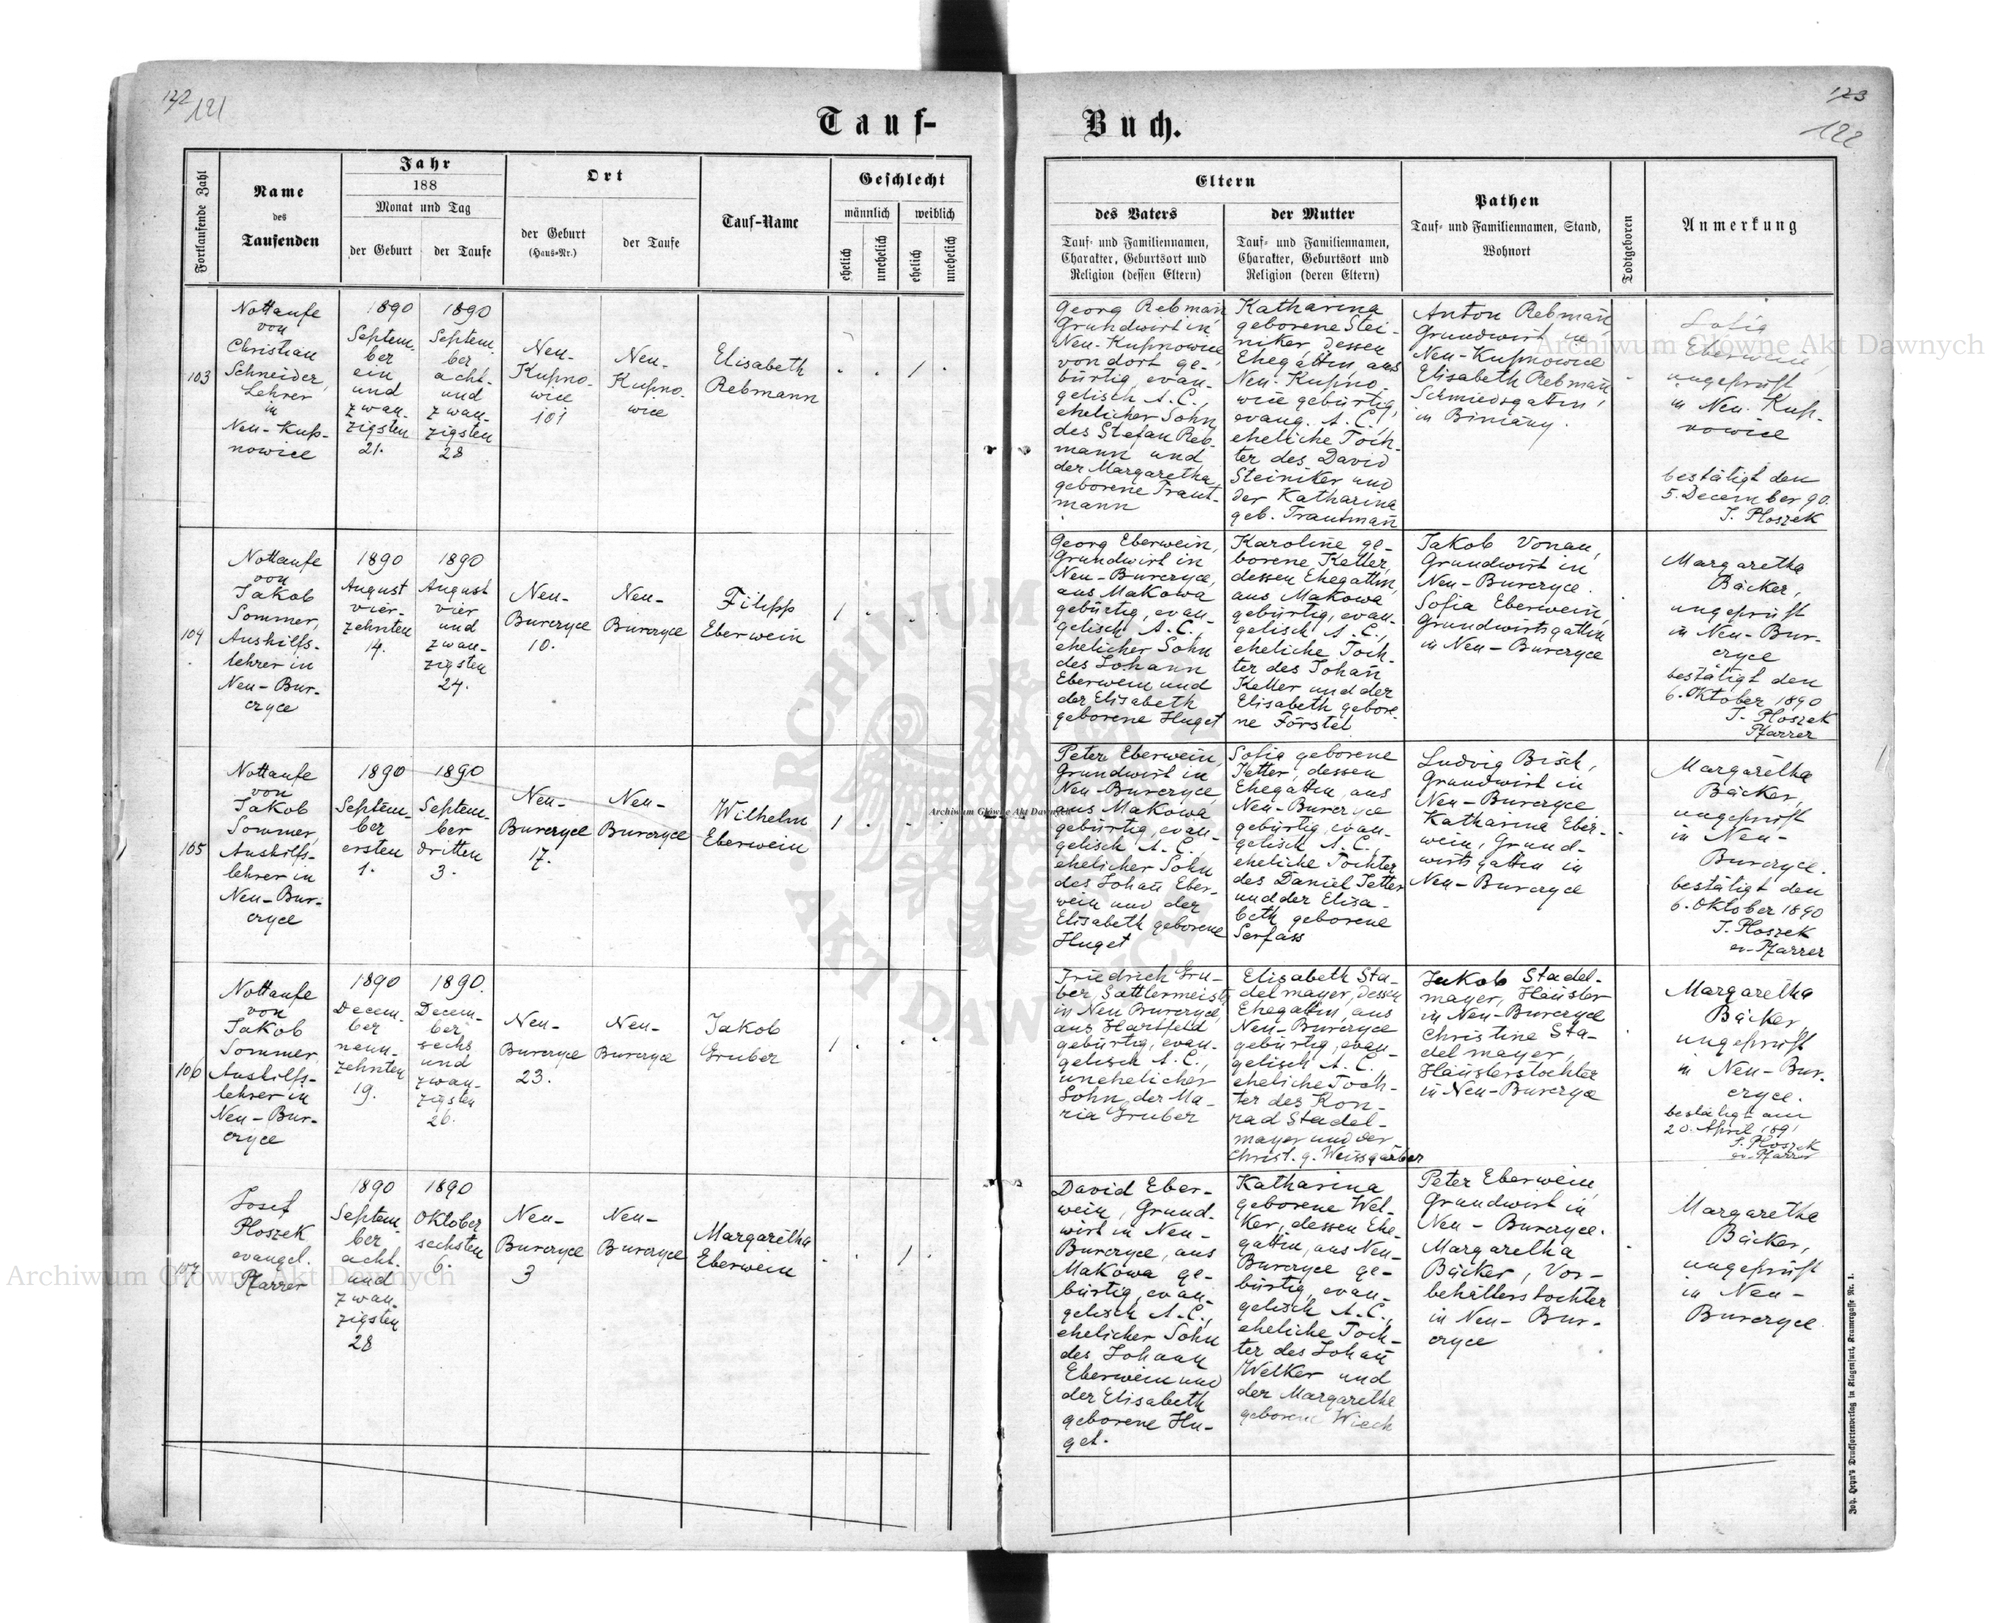 122
121
Tauf-
Buch.
123
122
Fortlaufende Zahl
Name
des
Taufenden
Jahr
188
Monat und Tag
der Geburt
der Taufe
Ort
der Geburt
(Haus-Nr.)
der Taufe
Tauf-Name
Geschlecht
männlich
weiblich
ehelich
unehelich
ehelich
unehelich
Eltern
des Vaters
Tauf- und Familiennamen,
Charakter, Geburtsort und
Religion (dessen Eltern)
der Mutter
Tauf- und Familiennamen,
Charakter, Geburtsort und
Religion (deren Eltern)
Pathen
Tauf- und Familiennamen, Stand,
Wohnort
Todtgeboren
Anmerkung
103
Nottaufe
von
Christian
Schneider,
Lehrer
in
Neu-Kup-
nowice
1890
Septem-
ber
ein
und
zwan-
zigsten
21.
1890
Septem-
ber
acht-
und
zwan-
zigsten
28
Neu-
Kupno-
wice
101
Neu-
Kupno-
wice
Elisabeth
Rebmann
1
Georg Rebmañ
Grundwirt in
Neu-Kupnowice
von dort ge-
bürtig, evan-
gelisch A. C.,
ehelicher Sohn
des Stefan Reb-
mann und
der Margaretha
geborene Traut-
mann
Katharina
geborene Stei-
niker, dessen
Ehegattin, aus
Neu-Kupno-
wice gebürtig,
evang. A. C.,
eheliche Toch-
ter des David
Steiniker und
der Katharina
geb. Trautmañ
Anton Rebmañ,
Grundwirt in
Neu-Kupnowice
Elisabeth Rebmañ
Schmiedsgattin,
in Binczny.
Sofia
Eberwein,
ungeprüft
in Neu-Kup-
nowice
bestätigt den
5. December 90.
J. Ploszek
104
Nottaufe
von
Jakob
Sommer,
Aushilfs-
lehrer in
Neu-Bur-
czyce
1890
August
vier-
zehnten
14.
1890
August
vier
und
zwan-
zigsten
24.
Neu-
Burczyce
10.
Neu-
Burczyce
Filipp
Eberwein
1
Georg Eberwein,
Grundwirt in
Neu-Burczyce,
aus Makowa
gebürtig, evan-
gelisch A. C.,
ehelicher Sohn
des Johann
Eberwein und
der Elisabeth
geborene Huget
Karoline ge-
borene Keller,
dessen Ehegattin,
aus Makowa
gebürtig, evan-
gelisch A. C.,
eheliche Toch-
ter des Johañ
Keller und der
Elisabeth gebore-
ne Förstel
Jakob Vonau,
Grundwirt in
Neu-Burczyce.
Sofia Eberwein,
Grundwirtsgattin
in Neu-Burczyce
Margaretha
Bäcker,
ungeprüft
in Neu-Bur-
czyce
bestätigt den
6. Oktober 1890
J. Ploszek
Pfarrer
105
Nottaufe
von
Jakob
Sommer,
Aushilfs-
lehrer in
Neu-Bur-
czyce
1890
Septem-
ber
ersten
1.
1890
Septem-
ber
dritten
3.
Neu-
Burczyce
17.
Neu-
Burczyce
Wilhelm
Eberwein
1
Peter Eberwein,
Grundwirt in
Neu-Burczyce,
aus Makowa
gebürtig, evan-
gelisch A. C.,
ehelicher Sohn
des Johañ Eber-
wein und der
Elisabeth geborene
Huget
Sofia geborene
Jetter, dessen
Ehegattin, aus
Neu-Burczyce
gebürtig, evan-
gelisch A. C.,
eheliche Tochter
des Daniel Jetter
und der Elisa-
beth geborene
Serfass
Ludwig Bisch,
Grundwirt in
Neu-Burczyce
Katharina Eber-
wein, Grund-
wirtsgattin in
Neu-Burczyce
Margaretha
Bäcker,
ungeprüft
in Neu-
Burczyce.
bestätigt den
6. Oktober 1890
J. Ploszek
ev. Pfarrer
106
Nottaufe
von
Jakob
Sommer,
Aushilfs-
lehrer in
Neu-Bur-
czyce
1890
Decem-
ber
neun-
zehnten
19.
1890.
Decem-
ber
sechs
und
zwan-
zigsten
26.
Neu-
Burczyce
23.
Neu-
Burczyce
Jakob
Gruber
1
Friedrich Gru-
ber, Sattlermeister
in Neu Burczyce,
aus Hartfeld
gebürtig, evan-
gelisch A. C.,
unehelicher
Sohn der Ma-
ria Gruber
Elisabeth Sta-
delmayer, dessen
Ehegattin, aus
Neu-Burczyce
gebürtig, evan-
gelisch A. C.,
eheliche Toch-
ter des Kon-
rad Stadel-
mayer und der
Christ. g. Weissgärber
Jakob Stadel-
mayer, Häusler
in Neu-Burczyce
Christine Sta-
delmayer,
Häuslerstochter
in Neu-Burczyce
Margaretha
Bäcker,
ungeprüft
in Neu-Bur-
czyce.
bestätigt am
20. April 1891
J. Ploszek
ev. Pfarrer
107
Josef
Ploszek
evangel.
Pfarrer
1890
Septem-
ber
acht-
und
zwan-
zigsten
28
1890
Oktober
sechsten
6.
Neu-
Burczyce
3
Neu-
Burczyce
Margaretha
Eberwein
1
David Eber-
wein, Grund-
wirt in Neu-
Burczyce, aus
Makowa ge-
bürtig, evan-
gelisch A. C.,
ehelicher Sohn
des Johann
Eberwein und
der Elisabeth
geborene Hu-
get.
Katharina
geborene Wel-
ker, dessen Ehe-
gattin, aus Neu-
Burczyce ge-
bürtig, evan-
gelisch A. C.,
eheliche Toch-
ter des Johañ
Welker und
der Margarethe
geborene Wieck
Peter Eberwein,
Grundwirt in
Neu-Burczyce.
Margaretha
Bäcker, Vor-
behälterstochter
in Neu-Bur-
czyce
Margaretha
Bäcker,
ungeprüft
in Neu-
Burczyce.
Joh. Heyn's Drucksortenverlag in Klagenfurt, Kramergasse Nr. 1.
Archiwum Główne Akt Dawnych
Archiwum Główne Akt Dawnych
Archiwum Główne Akt Dawnych
ARCHIWUM GŁÓWNE AKT DAWNYCH